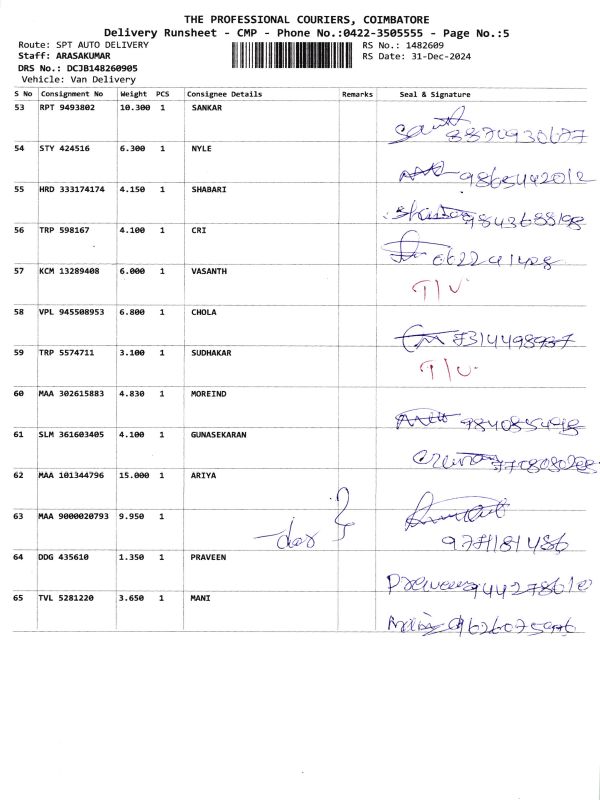 THE PROFESSIONAL COURIERS, COIMBATORE
Delivery Runsheet - CMP - Phone No.:0422-3505555 - Page No.:5
Route: SPT AUTO DELIVERY RS No.: 1482609
Staff: ARASAKUMAR RS Date: 31-Dec-2024
DRS No.: DCJB148260905
Vehicle: Van Delivery
S No Consignment No Weight PCS Consignee Details Remarks Seal & Signature
53 RPT 9493802 10.300 1 SANKAR
54 STY 424516 6.300 1 NYLE
55 HRD 333174174 4.150 1 SHABARI
56 TRP 598167 4.100 1 CRI
57 KCM 13289408 6.000 1 VASANTH
58 VPL 945508953 6.800 1 CHOLA
59 TRP 5574711 3.100 1 SUDHAKAR
60 MAA 302615883 4.830 1 MOREIND
61 SLM 361603405 4.100 1 GUNASEKARAN
62 MAA 101344796 15.000 1 ARIYA
63 MAA 9000020793 9.950 1
64 DDG 435610 1.350 1 PRAVEEN
65 TVL 5281220 3.650 1 MANI